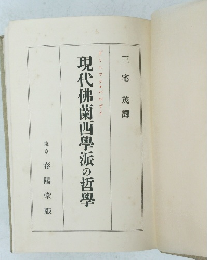 三宅茂譯
現代佛蘭西學派の哲學
東京 春陽堂版